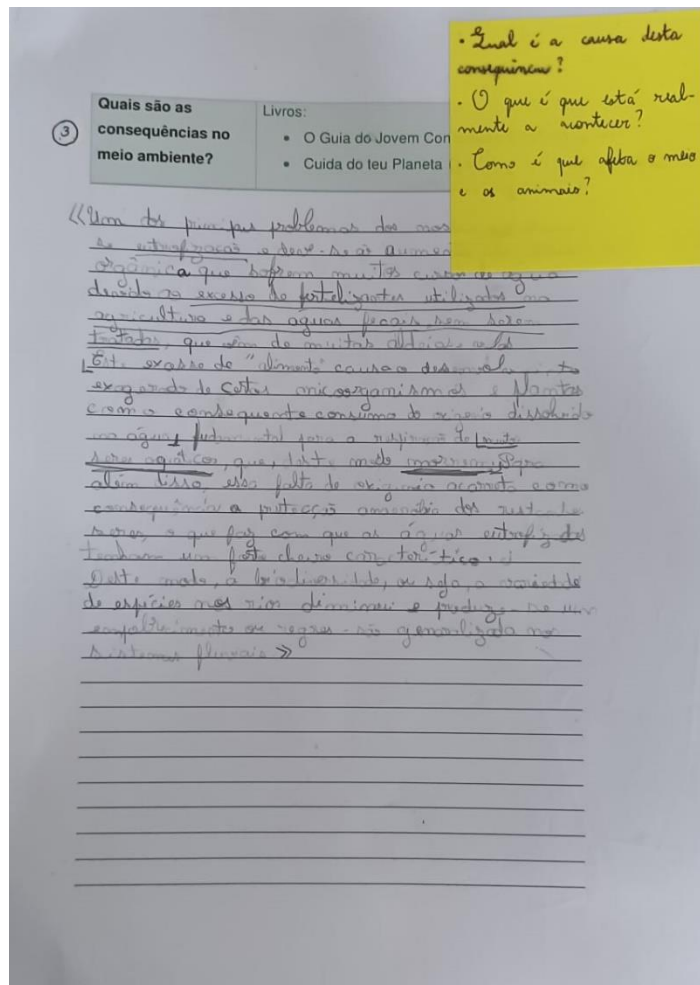 • Qual é a causa desta
consequência?
• O que é que está real-
mente a acontecer?
• Como é que afeta o meio
e os animais?
3
Quais são as
consequências no
meio ambiente?
Livros:
• O Guia do Jovem Con
• Cuida do teu Planeta
«Um dos principais problemas dos
se eutrofização e deve-se ao
orgânica que sofrem muitos cursos de água
devido ao excesso de fertelizantes utilizados na
agricultura e das águas fecais sem serem
tratadas, que vêm de muitas aldeias
Este exasso de "alimento" causa o
exagerado de certos microorganismos e plantas
com o consequente consumo do dissolvido
na água, fundamental para a respiração de
seres aquáticos, que, deste modo morrem. Para
além disso, essa falta de oxigénio acarreta como
consequência a dos
seres, o que faz com que as águas
tenham um forte cheiro
Deste modo, a biodiversidade, ou seja, a variedade
de espécies nos rios diminui e produz-se um
ou generalizada no
sistemas fluviais»